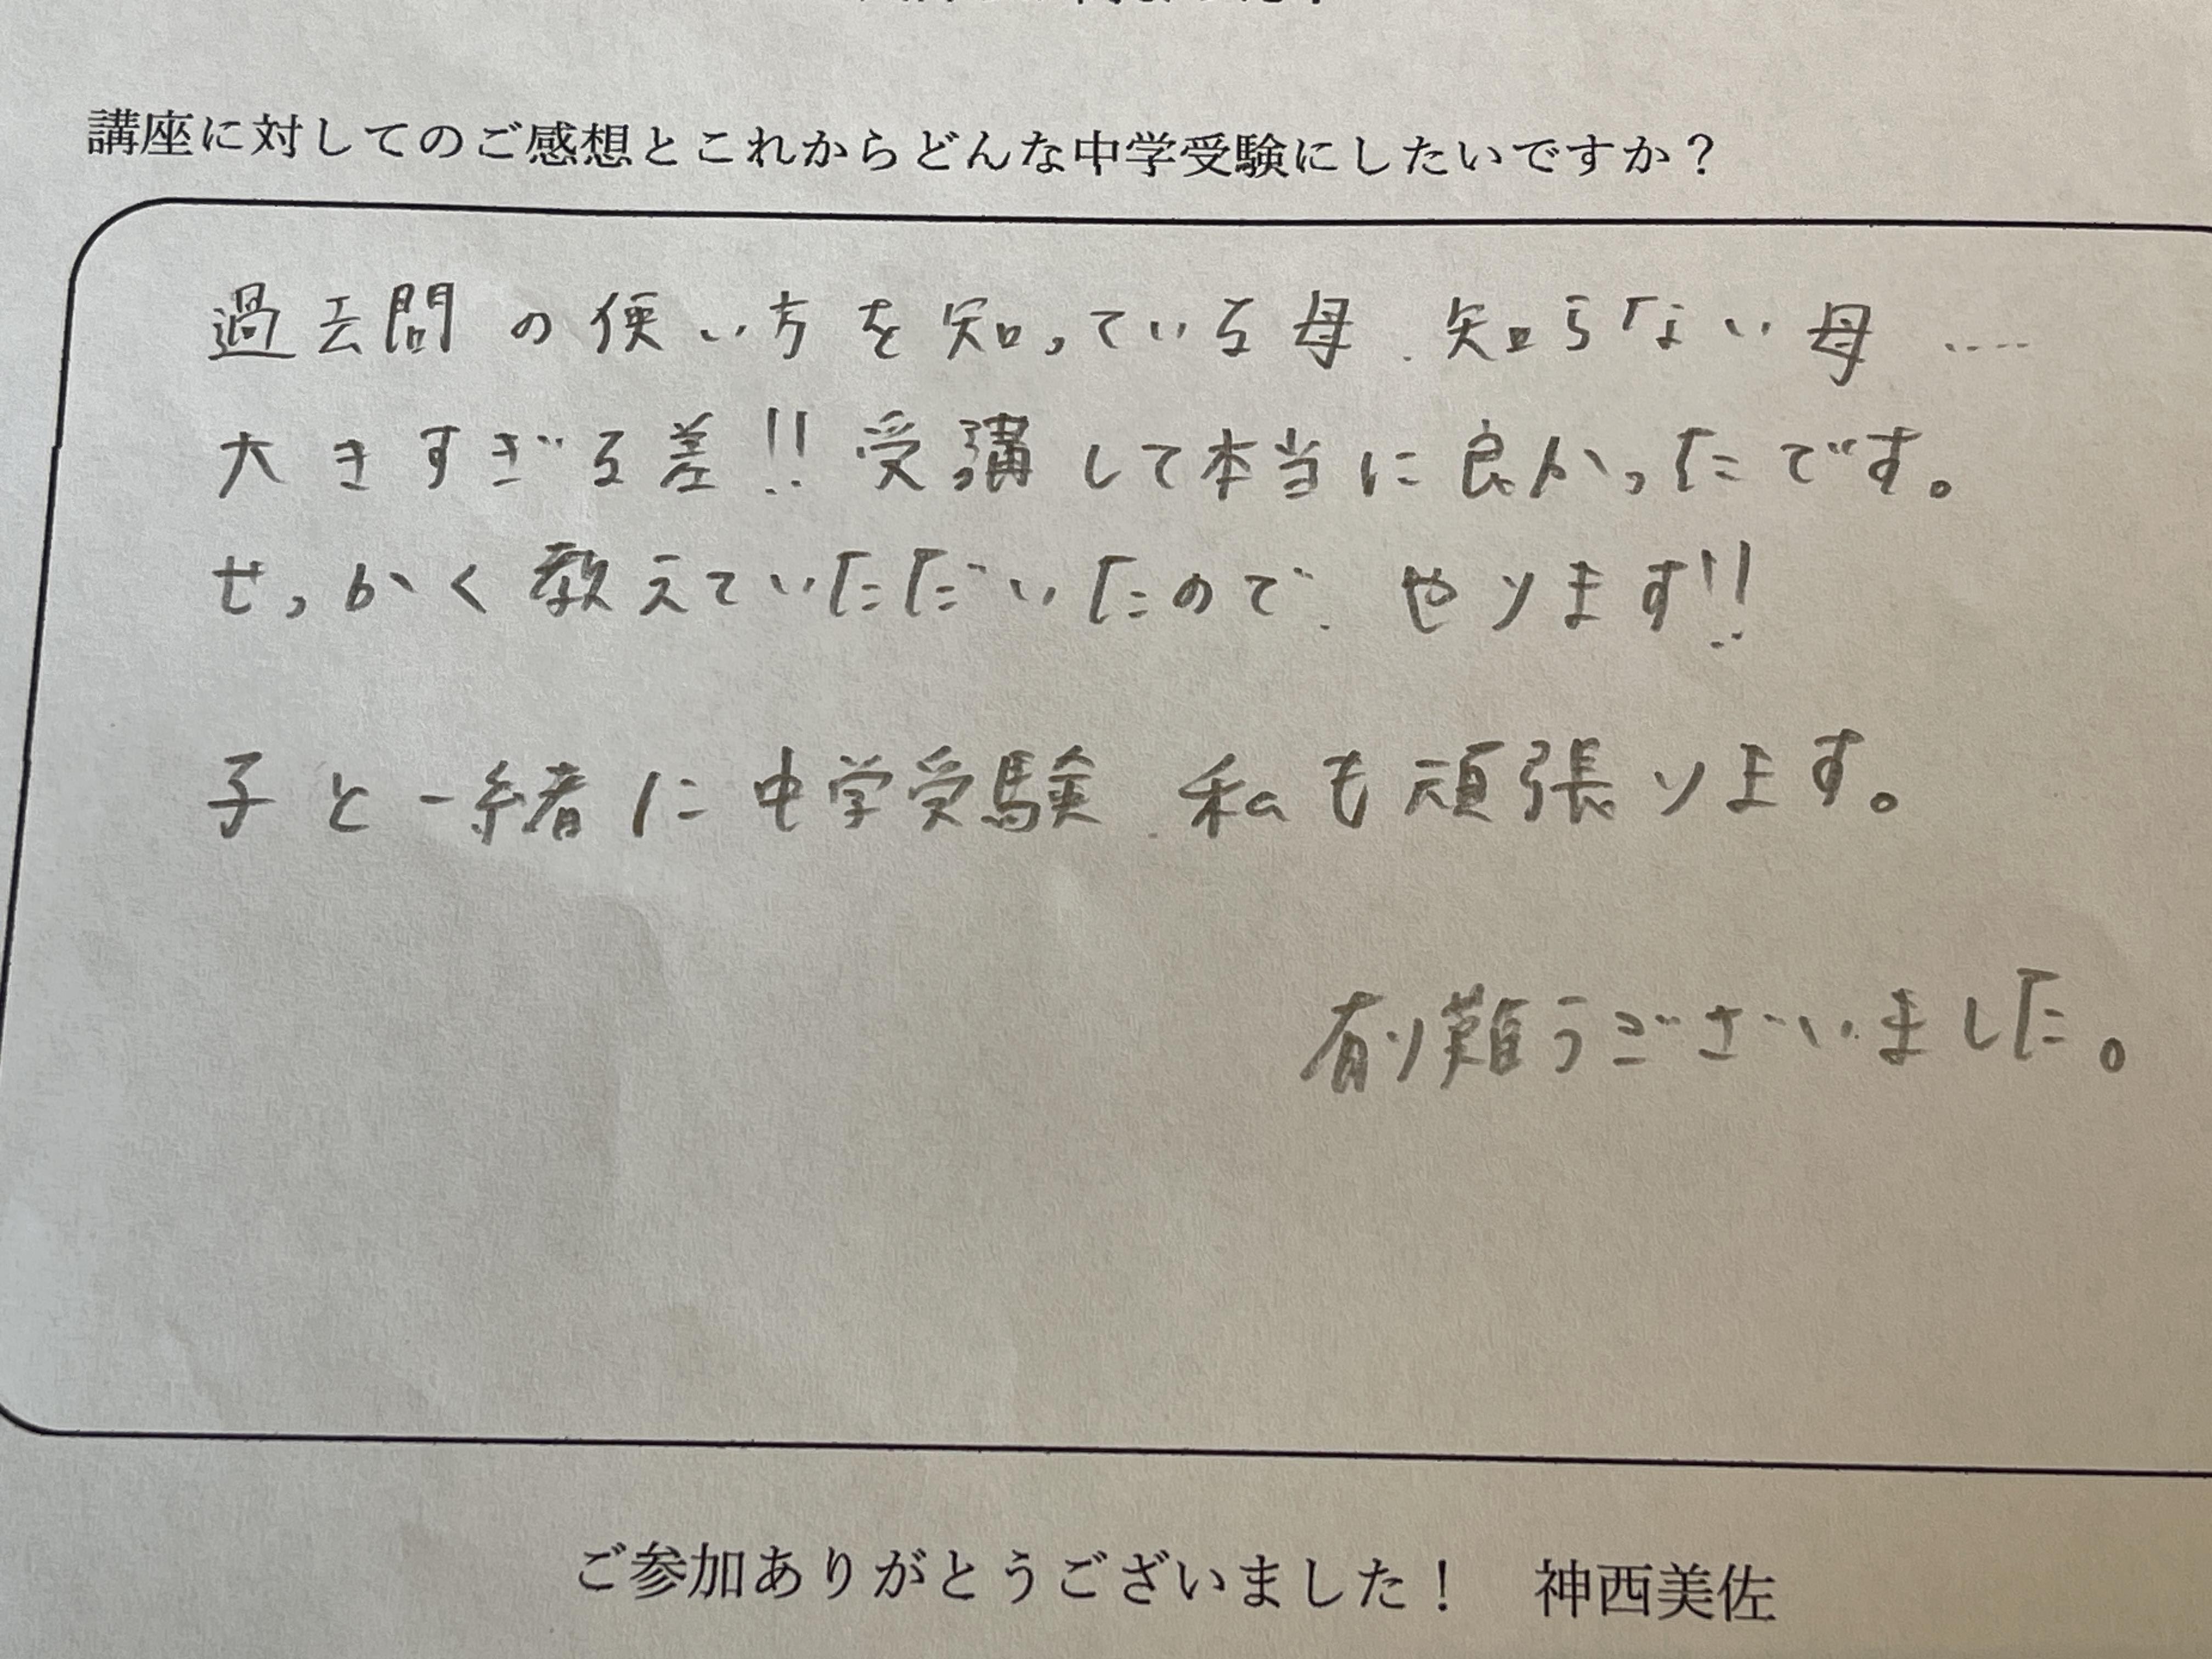 講座に対してのご感想とこれからどんな中学受験にしたいですか？
過去問の使い方を知っている母、知らない母……
大きすぎる差!! 受講して本当に良かったです。
せっかく教えていただいたので、やります!!
子と一緒に中学受験、私も頑張ります。
有り難うございました。
ご参加ありがとうございました！　神西美佐